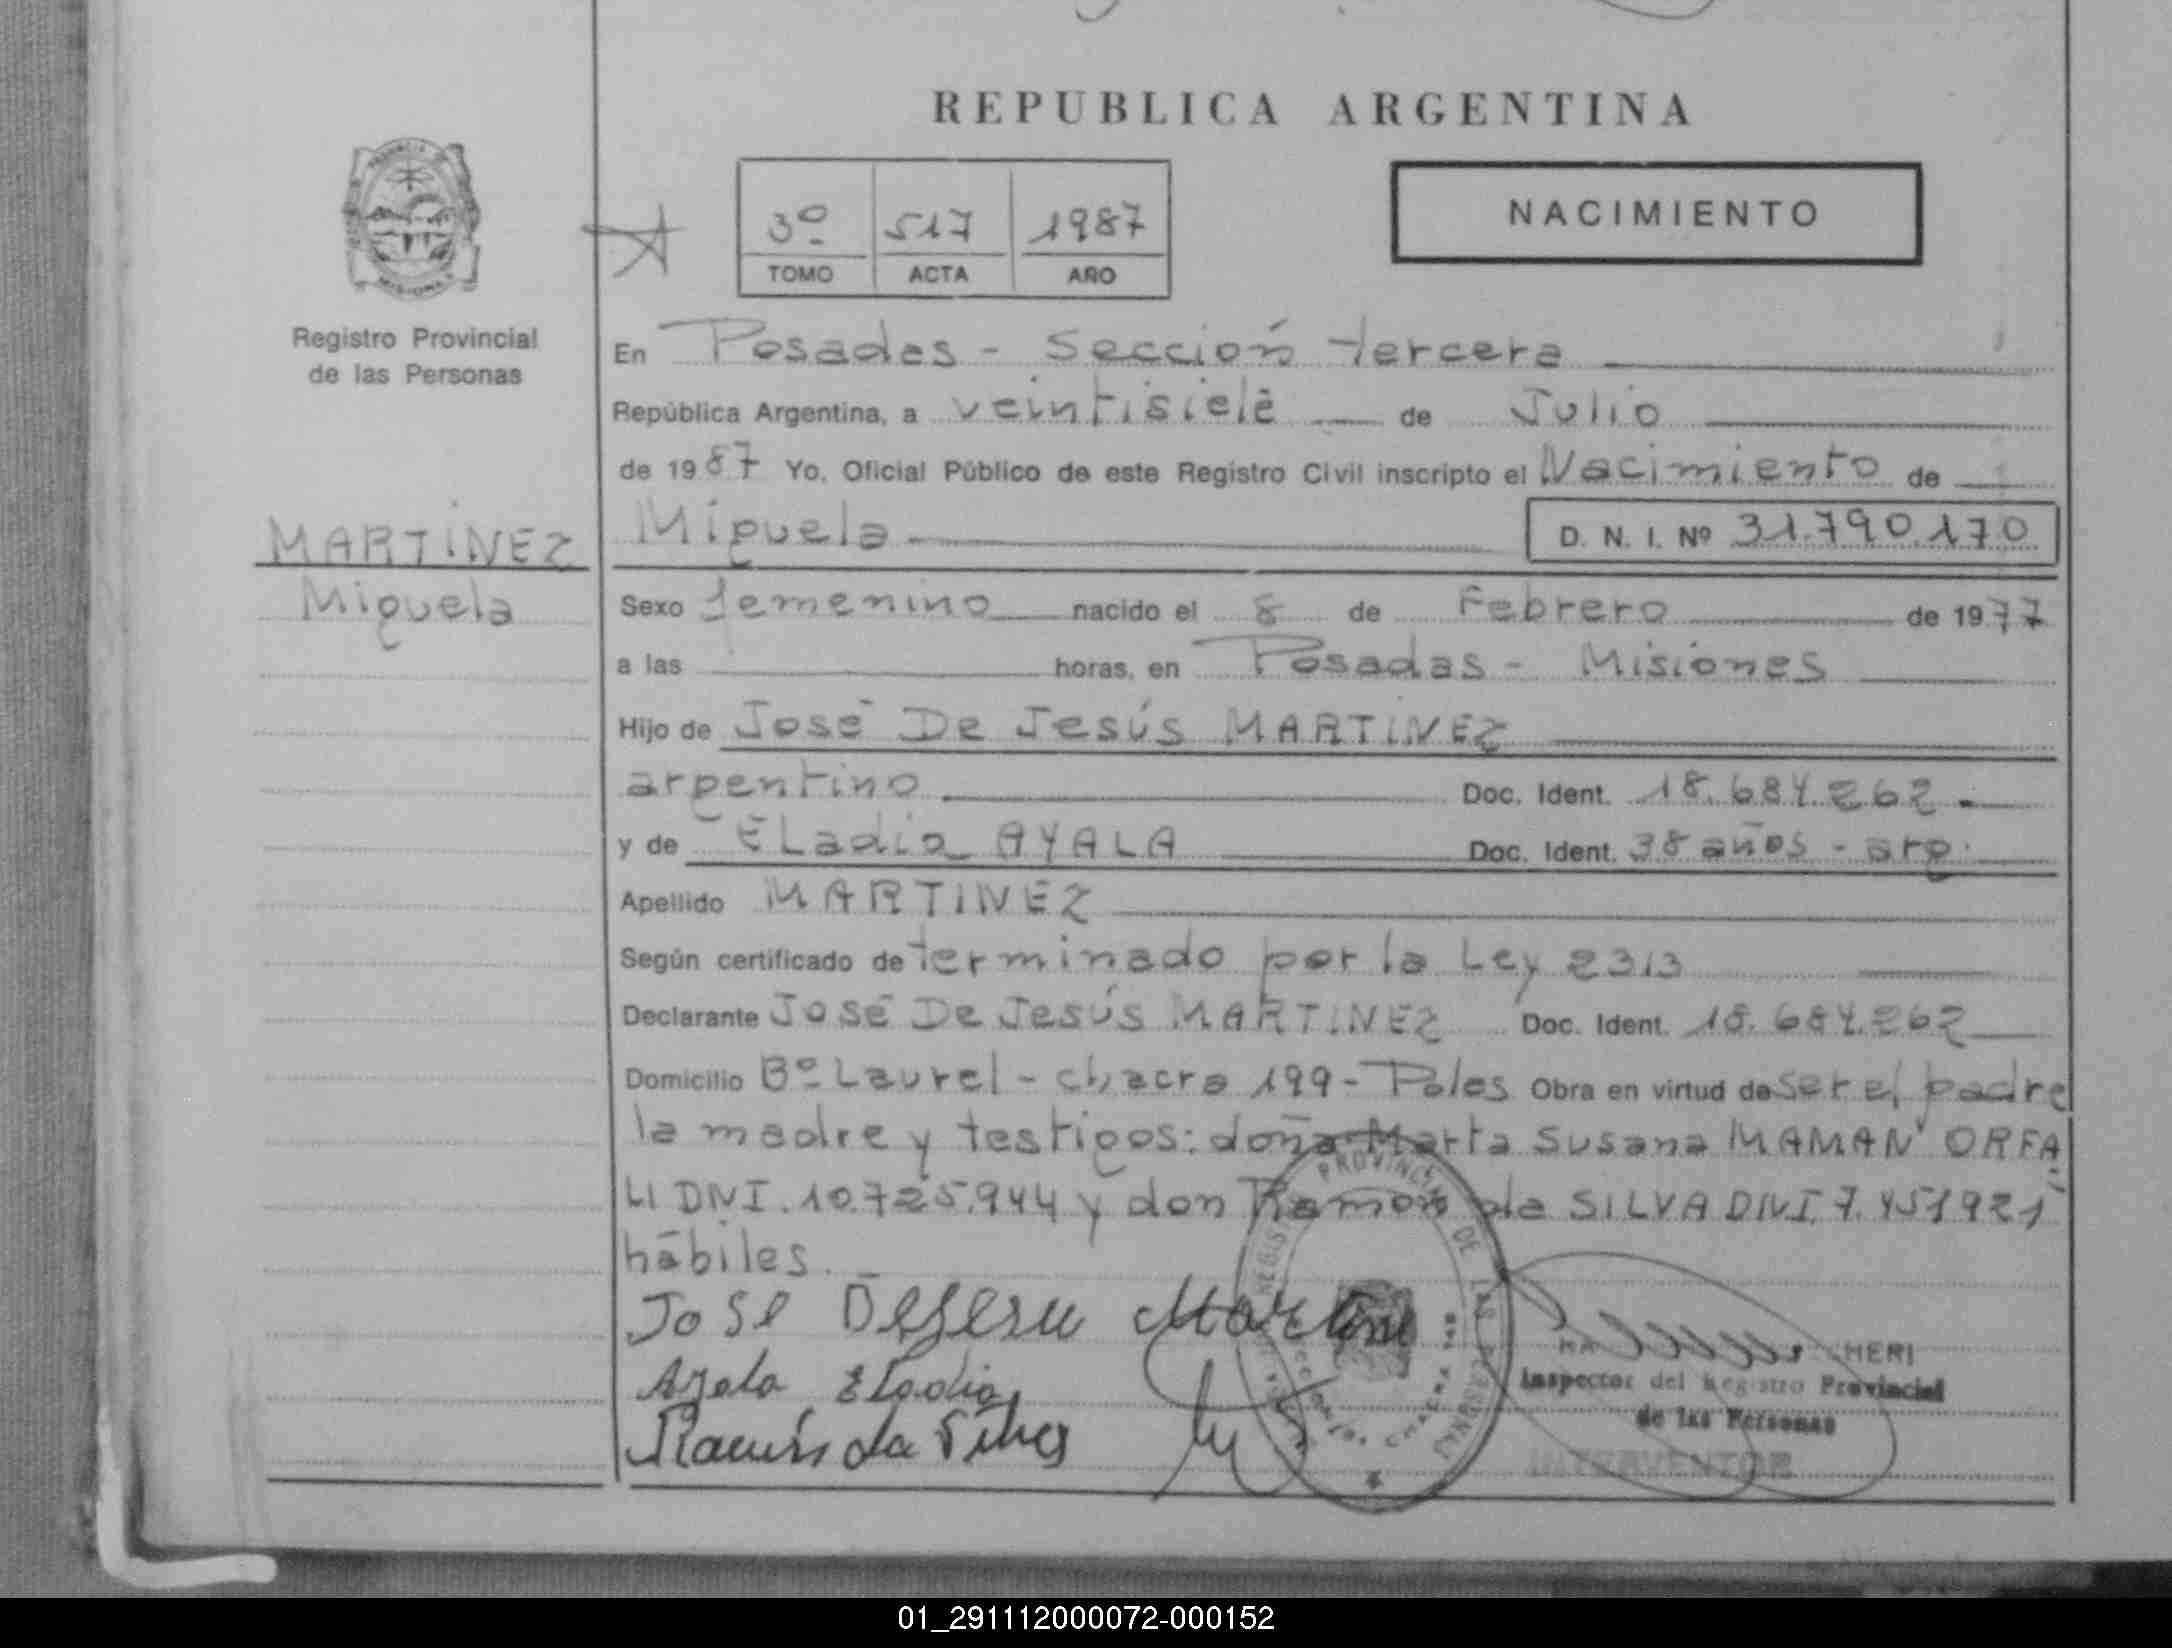 REPUBLICA ARGENTINA
NACIMIENTO
3º 517 1987
TOMO ACTA AÑO
Registro Provincial
de las Personas
En Posadas - Sección tercera
República Argentina, a veintisiete de Julio
de 1987 Yo, Oficial Público de este Registro Civil inscripto el Nacimiento de
MARTINEZ
Miguela
Miguela D. N. I. Nº 31.790.170
Sexo femenino nacido el 8 de Febrero de 1977
a las horas, en Posadas - Misiones
Hijo de José De Jesús MARTINEZ
argentino Doc. Ident. 18.684.262.
y de ELadia AYALA Doc. Ident. 38 años - arg.
Apellido MARTINEZ
Según certificado de terminado por la Ley 2313
Declarante José De Jesús MARTINEZ Doc. Ident. 18.684.262
Domicilio Bº Laurel - chacra 199 - Obra en virtud de ser el padre
la madre y testigos: doña Marta Susana MAMAN ORFA
LI DNI. 10.725.944 y don Ramon da SILVA DNI. 7.451921
hábiles.
Jose Martine
Ayala Eladia
Ramón da Silva
PROVINCIAL DE LAS PERSONAS
HERI
Inspector del Registro Provincial
de las Personas
INTERVENTOR
01_291112000072-000152